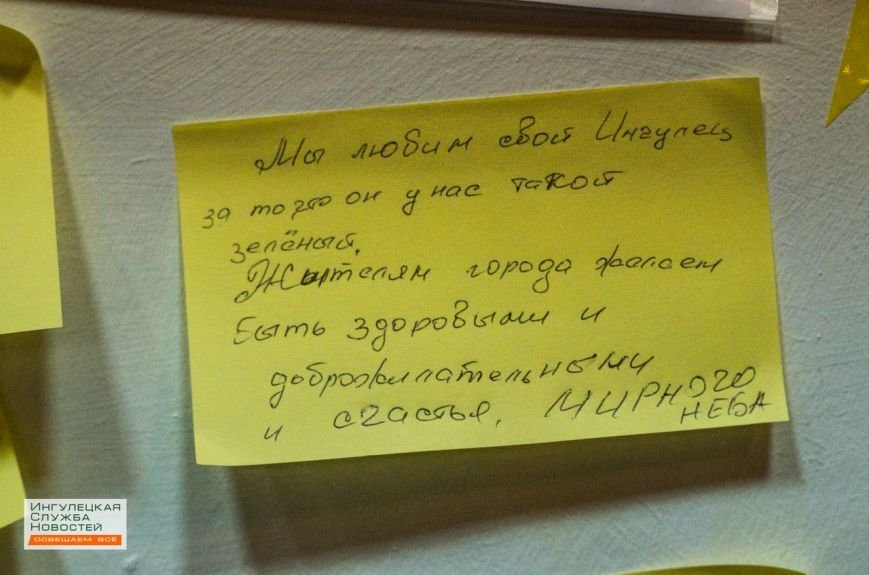 Мы любим свой Ингулец
за то что он у нас такой
зелёный.
Жителям города желаем
быть здоровыми и
доброжилательными
и счастья, МИРНОГО
НЕБА
ИНГУЛЕЦКАЯ
СЛУЖБА
НОВОСТЕЙ
ОСВЕЩАЕМ ВСЁ